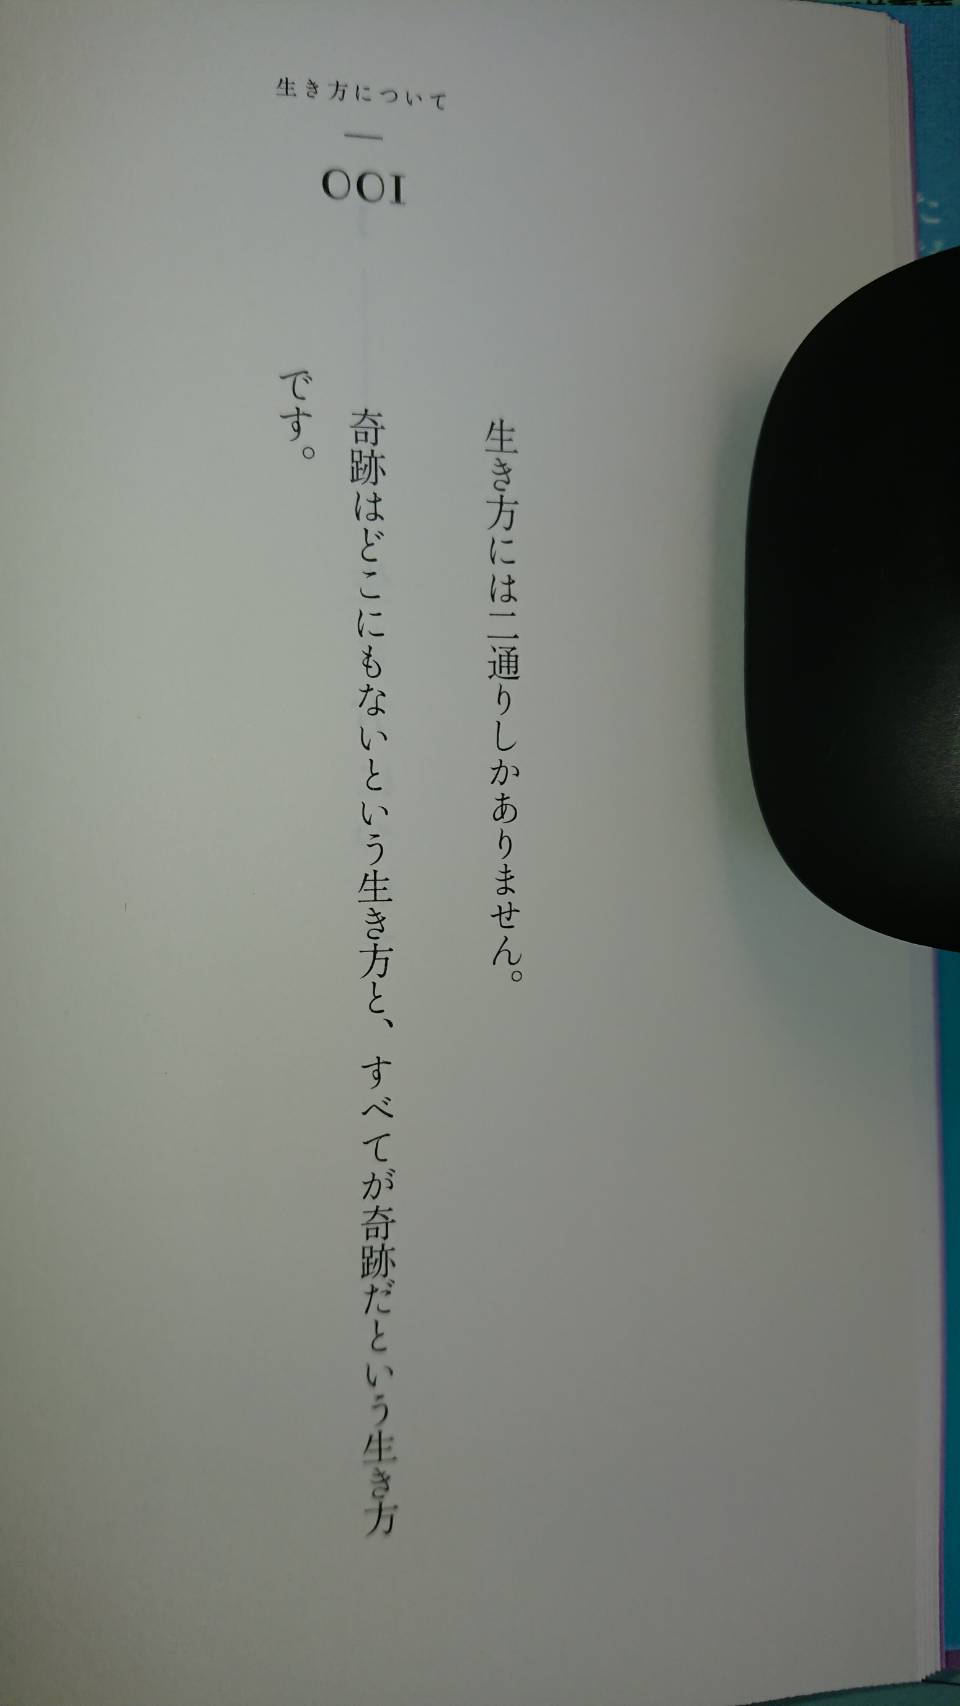 生き方について
001
生き方には二通りしかありません。
奇跡はどこにもないという生き方と、すべてが奇跡だという生き方
です。